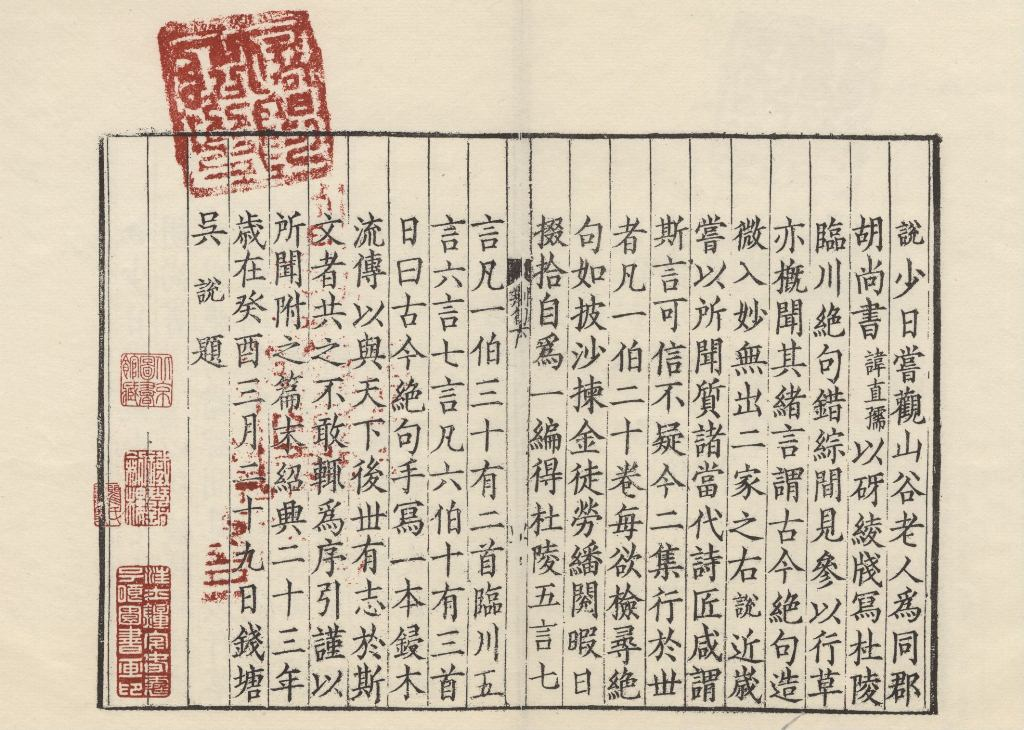 說少日嘗觀山谷老人爲同郡
胡尚書諱直孺以砑綾牋冩杜陵
臨川絶句錯綜間見參以行草
亦槪聞其緒言謂古今絶句造
微入妙無出二家之右說近嵗
嘗以所聞質諸當代詩匠咸謂
斯言可信不疑今二集行於丗
者凡一伯二十卷每欲檢尋絶
句如披沙揀金徒勞繙閱暇日
掇拾自爲一編得杜陵五言七
言凡一伯三十有二首臨川五
言六言七言凡六伯十有三首
目曰古今絶句手冩一本鋟木
流傳以與天下後丗有志於斯
文者共之不敢輒爲序引謹以
所聞附之篇末紹興二十三年
歳在癸酉三月二十九日錢塘
吳說題
北京圖書館藏